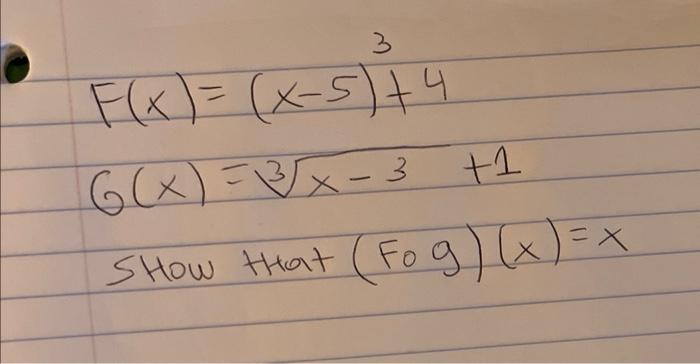 F(x) = (x-5)³ + 4
G(x) = ∛x-3 +1
SHow tHat (Fo g) (x) = x